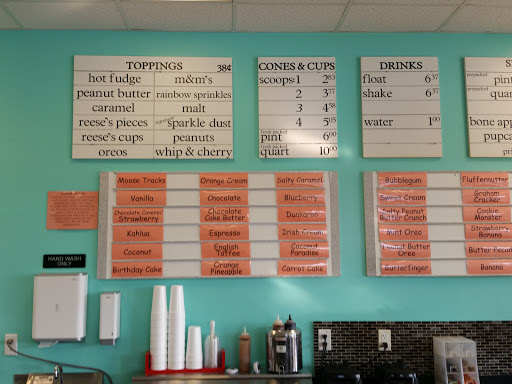 TOPPINGS 38¢
hot fudge m&m's
peanut butter rainbow sprinkles
caramel malt
reese's pieces sparkle dust
reese's cups peanuts
oreos whip & cherry
CONES & CUPS
scoops: 1 2.85
2 3.77
3 4.58
4 5.05
pint 6.00
quart 10.00
DRINKS
float 6.37
shake 6.37
water 1.00
prepacked
pint
prepacked
quar
bone app
pupca
Moose Tracks Orange Cream Salty Caramel
Vanilla Chocolate Blueberry
Chocolate Covered Strawberry Chocolate Cake Batter Dunkaroo
Kahlua Espresso Irish Cream
Coconut English Toffee Coconut Paradise
Birthday Cake Orange Pineapple Carrot Cake
Bubblegum Fluffernutter
Sweet Cream Graham Cracker
Salty Peanut Butter Crunch Cookie Monster
Mint Oreo Strawberry Banana
Peanut Butter Oreo Butter Pecan
Butterfinger Banana
HAND WASH
ONLY